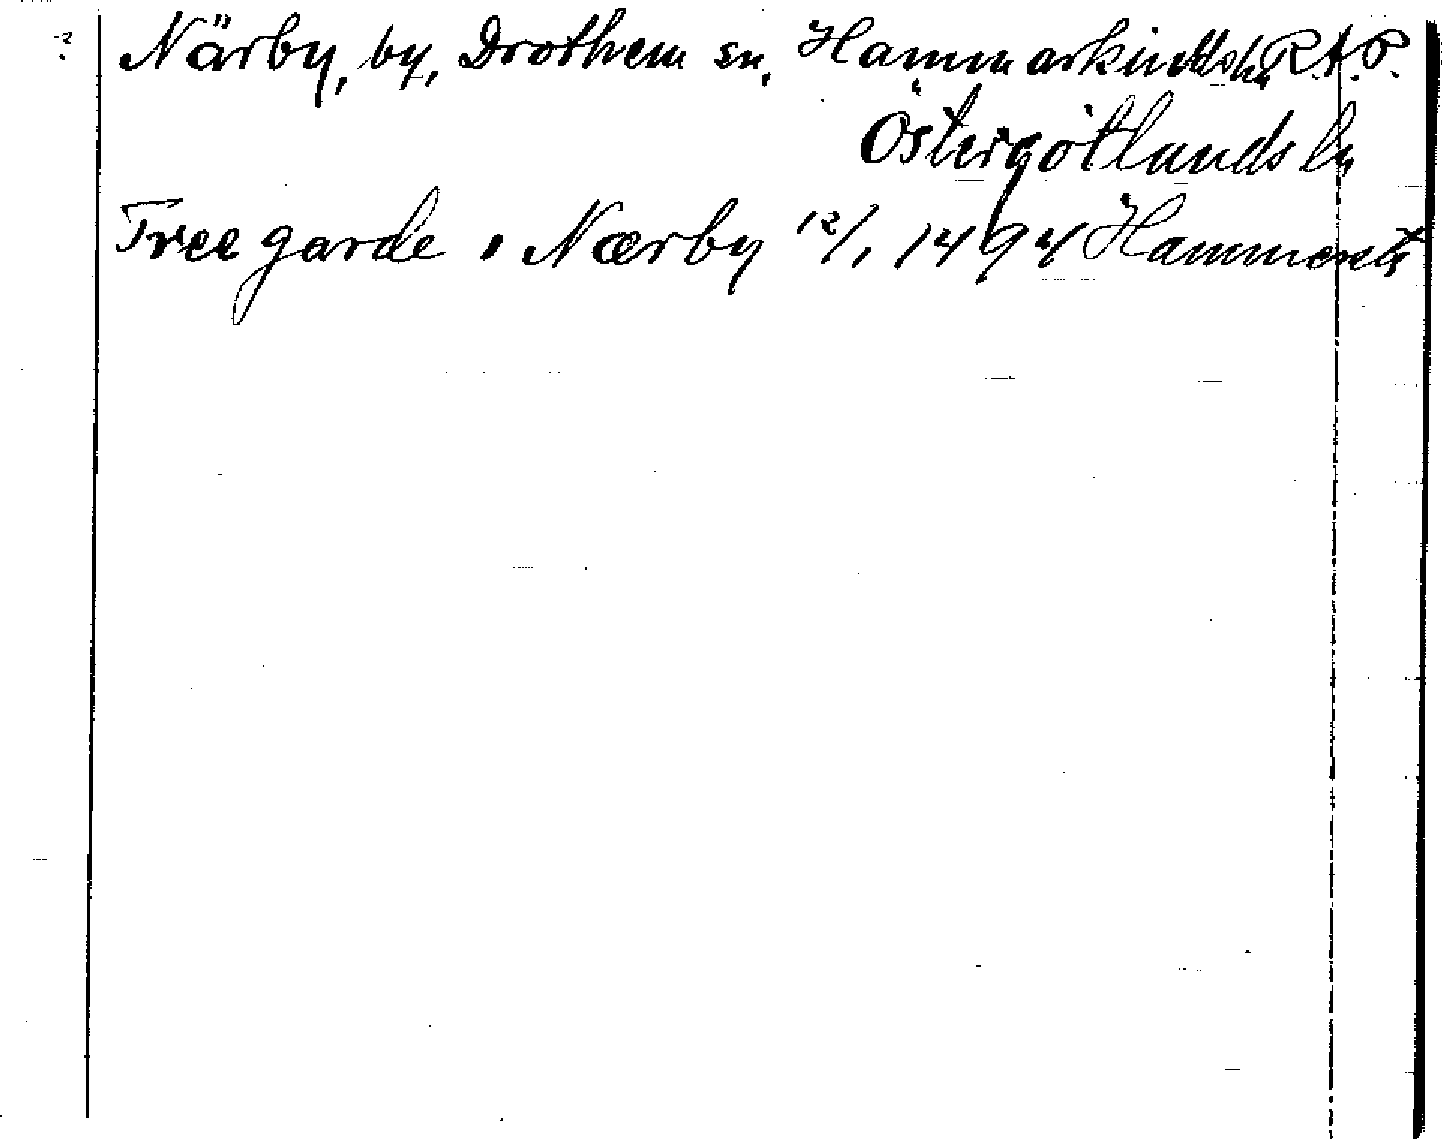 ? Närby, by, Drothem sn, Hammarkinds hd, R.A.P.
Östergötlands ln
Tree garde i Nærby 12/1 1494 Hammerst